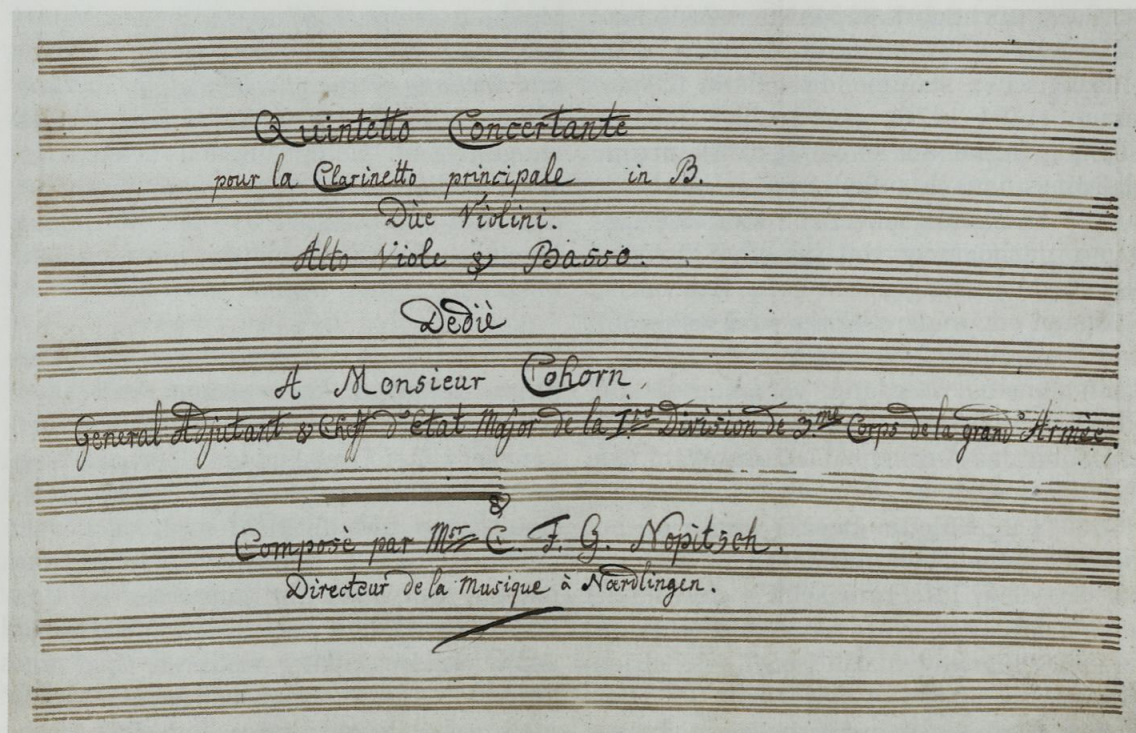 Quintetto Concertante
pour la Clarinetto principale in B.
Düe Violini.
Alto Viole & Basso.
Dediè
A Monsieur Cohorn,
General Adjutant & Cheff d'Etat Major de la I.re Division de 3.me Corps de la grand' Armèe.
&
Composè par Msr C. F. G. Nopitsch.
Directeur de la Musique à Nœrdlingen.